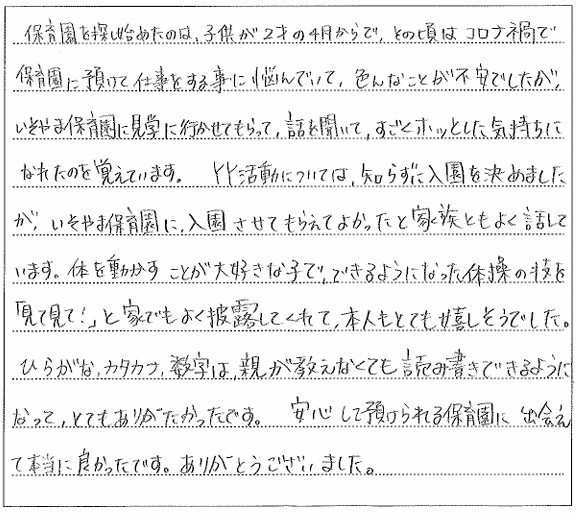 保育園を探し始めたのは、子供が2才の4月からで、その頃はコロナ禍で
保育園に預けて仕事をする事に悩んでいて、色んなことが不安でしたが、
いそやま保育園に見学に行かせてもらって、話を聞いて、すごくホッとした気持ちに
なれたのを覚えています。 YY活動については、知らずに入園を決めました
が、いそやま保育園に、入園させてもらえてよかったと家族ともよく話して
います。体を動かすことが大好きな子で、できるようになった体操の技を
「見て見て!」と家でもよく披露してくれて、本人もとても嬉しそうでした。
ひらがな、カタカナ、数字は、親が教えなくても読み書きできるように
なって、とてもありがたかったです。 安心して預けられる保育園に出会え
て本当に良かったです。ありがとうございました。